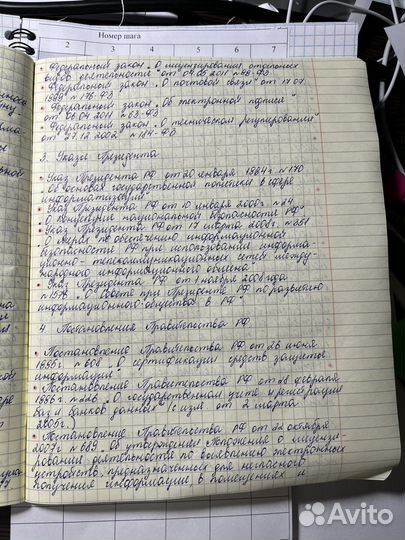 Номер шага
2 3 4 5 6
• Федеральный закон „О лицензировании отдельных
видов деятельности" от 04.05.2011 №
• Федеральный закон „О почтовой связи" от 17.07.
1999" № 176-ФЗ
• Федеральный закон „Об электронной подписи"
от 06.04.2011 № 63-ФЗ
• Федеральный закон „О техническом регулировании"
от 27.12.2002" № 184-ФЗ
3. Указы Президента
• Указ Президента РФ от 20 января 1994г. №170
„Об основах государственной политики в сфере
информатизации"
• Указ Президента РФ от 10 января 2000г. №24
„О концепции национальной безопасности РФ"
• Указ Президента РФ от 17 марта 2008г. №351
„О мерах по обеспечению информационной
безопасности РФ при использовании информа-
ционно-телекоммуникационных сетей между-
народного информационного обмена
• Указ Президента РФ от 1 ноября 2008 года
№1576 „О Совете при Президенте РФ по развитию
информационного общества в РФ"
4. Постановления Правительства РФ
• Постановление Правительства РФ от 26 июня
1995г. № 608 „О сертификации средств защиты
информации"
• Постановление Правительства РФ от 28 февраля
1996г. №226 „О государственном учете и регистрации
баз и банков данных" (с изм. от 2 марта
2005г.)
• Постановление Правительства РФ от октября
2007г. № 689 „Об утверждении Положения о лицензи-
ровании деятельности по выявлению электронных
устройств, предназначенных для негласного
получения информации, в помещениях и
Avito